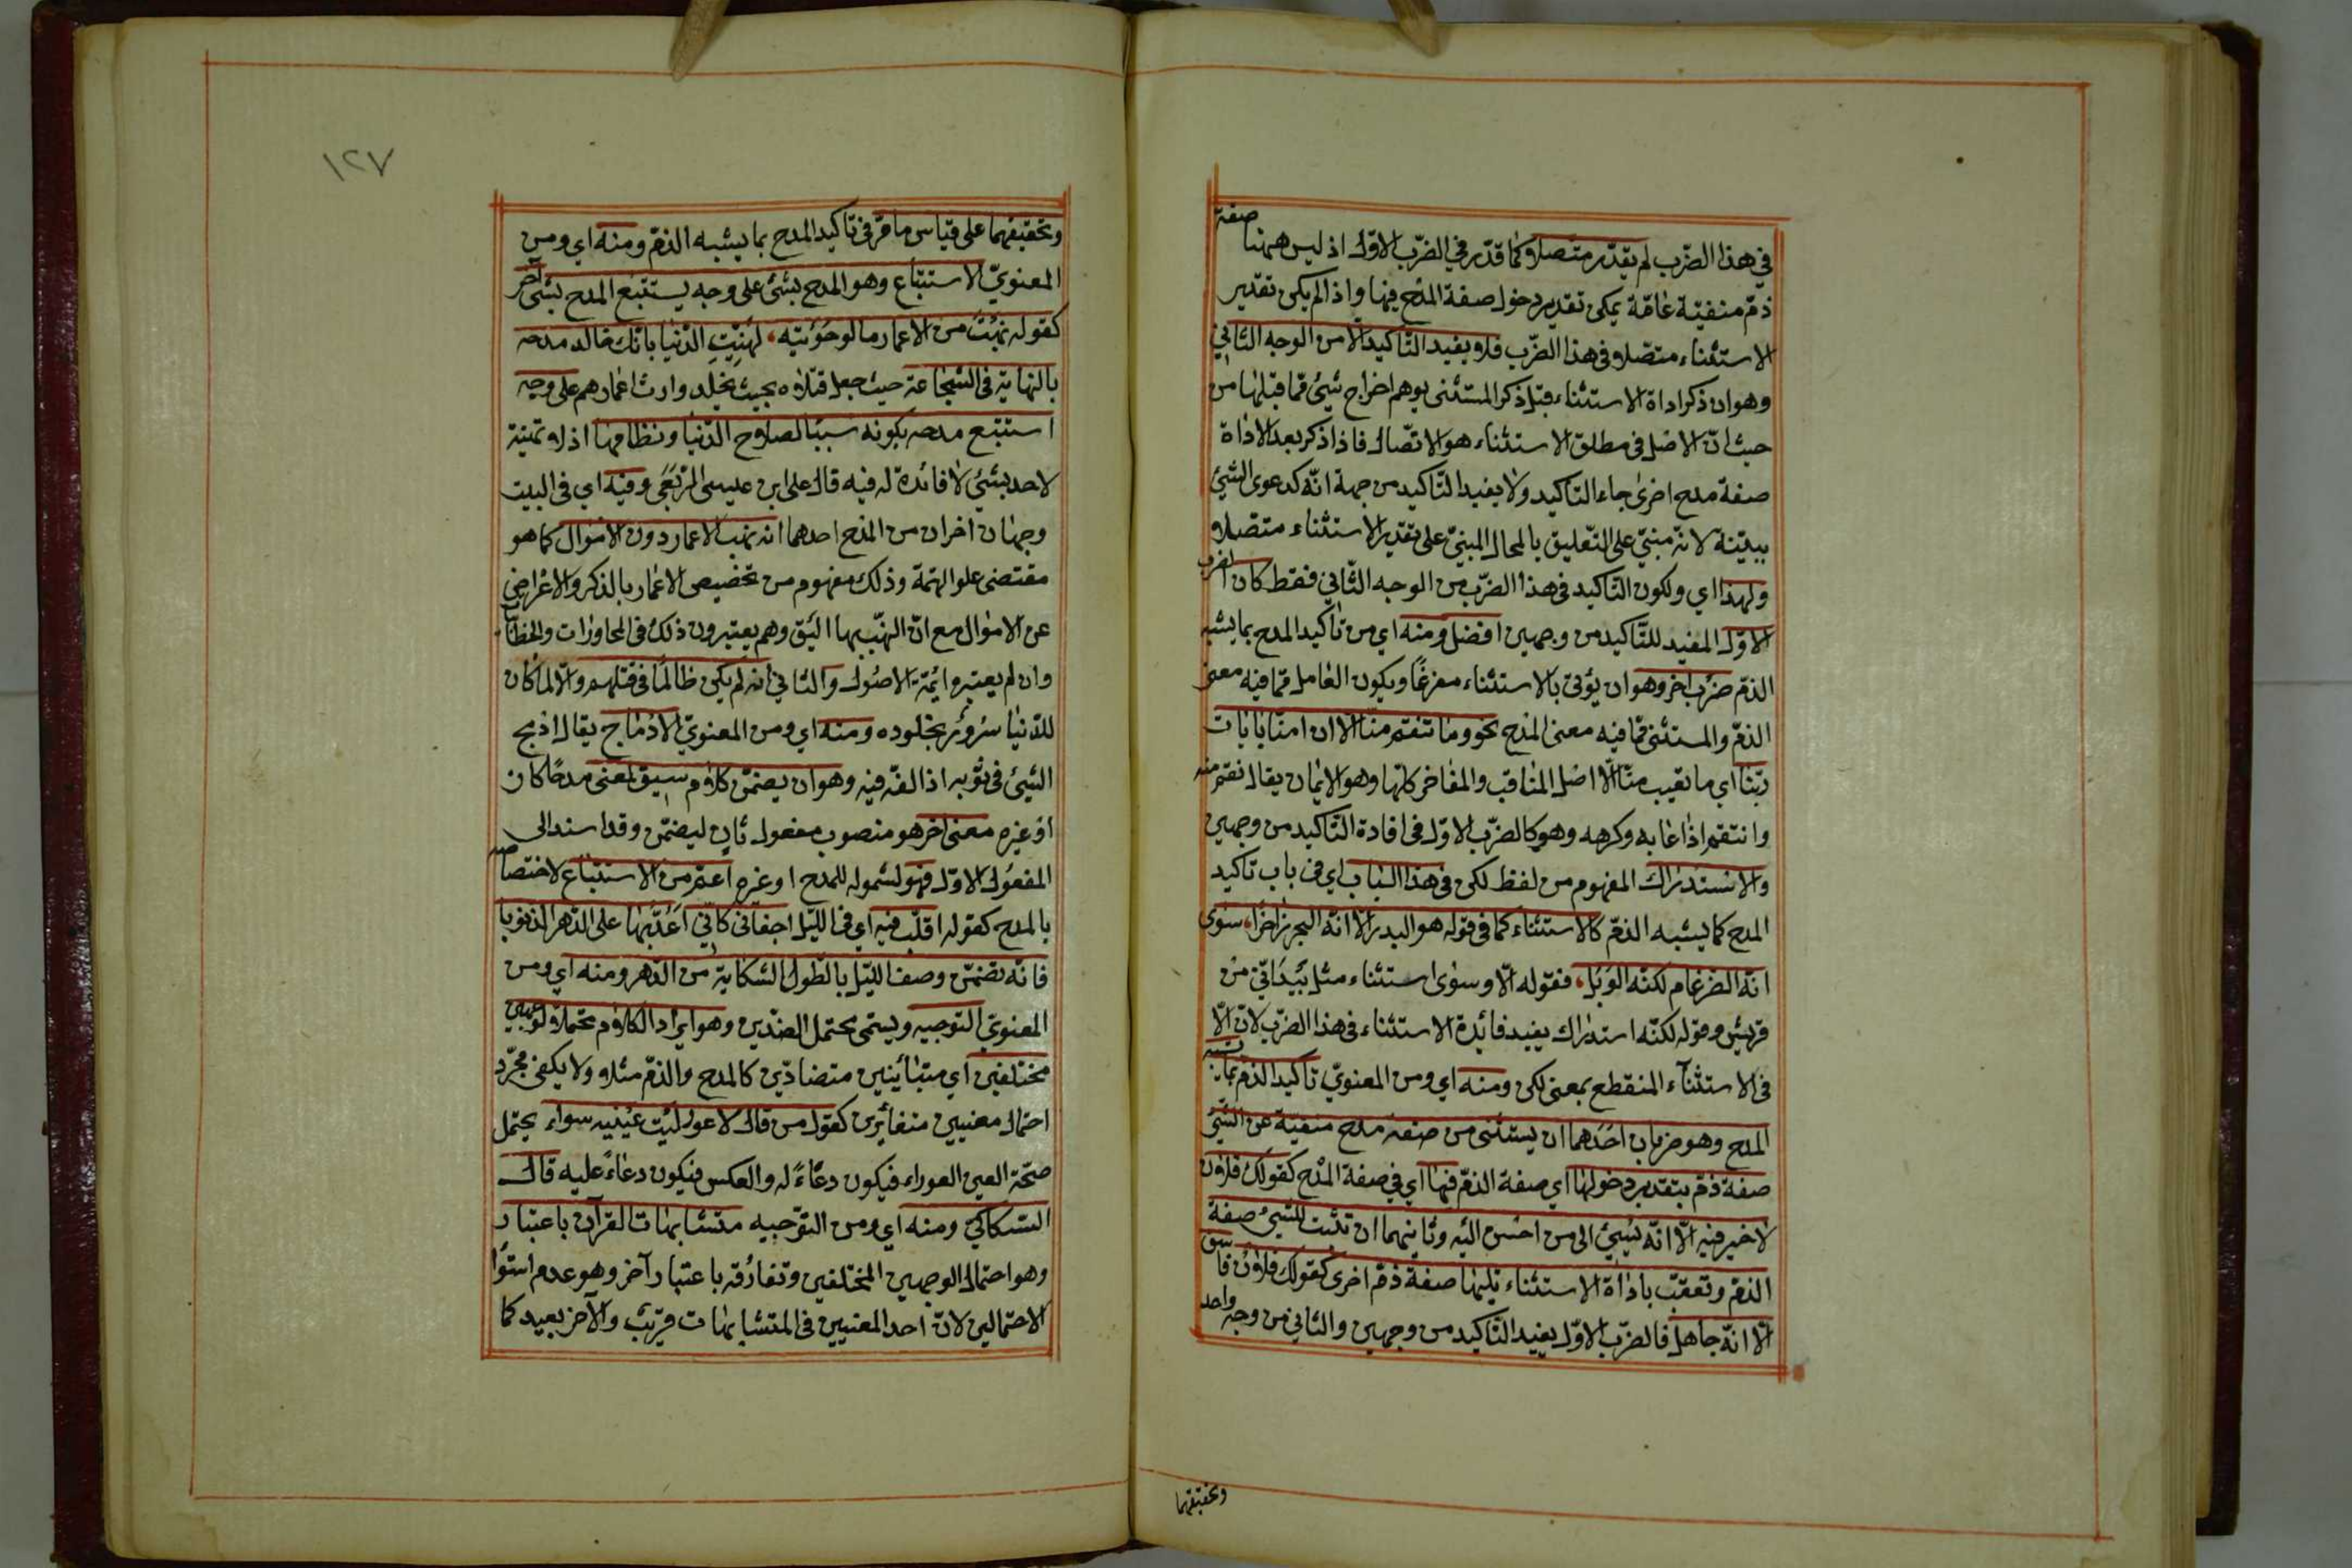 في هذا الضّرب لم يقدّر متصلا كما قدّر في الضّرب الاوّل اذ ليس ههنا صفة
ذمّ منفيّة عامّة يمكن تقدير دخول صفة المدح فيها واذا لم يكن تقدير
الاستثناء متصلا في هذا الضّرب فلا يفيد التّاكيد الا من الوجه الثّاني
وهو ان ذكر اداة الاستثناء قبل ذكر المستثنى يوهم اخراج شيئ ممّا قبلها من
حيث انّ الاصل في مطلق الاستثناء هو الاتّصال فاذا ذكر بعد الاداة
صفة مدح اخرى جاء التاكيد ولا يفيد التّاكيد من جهة انّه كدعوى الشّيئ
ببيّنة لانّه مبنيّ على التّعليق بالمحال المبنيّ على تقدير الاستثناء متصلا
ولهذا اي ولكون التّاكيد في هذا الضّرب من الوجه الثّاني فقط كان الضرب
الاوّل المفيد للتّاكيد من وجهين افضل ومنه اي من تاكيد المدح بما يشبه
الذمّ ضرب اخر وهو ان يؤتى بالاستثناء مفرغًا ويكون العامل ممّا فيه معنى
الذمّ والمستثنى ممّا فيه معنى المدح نحو وما تنقم منّا الّا ان امنّا بايات
ربّنا اي ما تعيب منّا الّا اصل المناقب والمفاخر كلّها وهو الايمان يقال نقم منه
وانتقم اذا عابه وكرهه وهو كالضّرب الاوّل في افادة التّاكيد من وجهين
والاستدراك المفهوم من لفظ لكن في هذا الباب اي في باب تاكيد
المدح كما يشبه الذمّ كالاستثناء كما في قوله هو البدر الّا انّه البحر زاخرًا، سوى
انّه الضرغام لكنّه الوبل، فقوله الّا وسوى استثناء مثل بيد انّي من
قريش وقوله لكنّه استدراك يفيد فائدة الاستثناء في هذا الضّرب لانّ الّا
في الاستثناء المنقطع بمعنى لكن ومنه اي ومن المعنويّ تاكيد الذمّ بما يشبه
المدح وهو ضربان احدهما ان يستثنى من صفة مدح منفيّة عن الشّيئ
صفة ذمّ بتقدير دخولها اي صفة الذمّ فيها اي في صفة المدح كقولك فلان
لا خير فيه الّا انّه يسيئ الى من احسن اليه وثانيهما ان تثبت للشّيئ صفة
الذمّ وتعقّب باداة الاستثناء تليها صفة ذمّ اخرى كقولك فلان فاسق
الّا انّه جاهل فالضّرب الاوّل يفيد التّاكيد من وجهين والثاني من وجه واحد
وتحقيقهما
١٢٧
وتحقيقهما على قياس ما مرّ في تاكيد المدح بما يشبه الذمّ ومنه اي ومن
المعنويّ الاستتباع وهو المدح بشئ على وجه يستتبع المدح بشئ اخر
كقوله نهبت من الاعمار ما لو حويته، لهنّيت الدّنيا بانّك خالد مدحه
بالنهاية في الشّجاعة حيث جعل قتلاه بحيث يخلد وارث اعمارهم على وجه
استتبع مدحه بكونه سببًا لصلاح الدّنيا ونظامها اذ لا تهنية
لاحد بشئ لا فائدة له فيه قال علي ابن عيسى الرّبعي وفيه اي في البيت
وجهان اخران من المدح احدهما انه نهب الاعمار دون الاموال كما هو
مقتضى علو الهمّة وذلك مفهوم من تخصيص الاعمار بالذكر والاعراض
عن الاموال مع انّ النهب بها اليق وهم يعتبرون ذلك في المحاورات والخطابات
وان لم يعتبره ائمّة الاصول والثاني انه لم يكن ظالمًا في قتلهم والّا لما كان
للدّنيا سرور بخلوده ومنه اي ومن المعنويّ الادماج يقال ادمج
الشّيئ في ثوبه اذا لفّه فيه وهو ان يضمّن كلام سيق لمعنى مدحًا كان
او غيره معنى اخر هو منصوب مفعول ثان ليضمّن وقد اسند الى
المفعول الاوّل فهو لشموله للمدح او غيره اعمّ من الاستتباع لاختصاصه
بالمدح كقوله اقلّب فيه اي في اللّيل اجفاني كانّي اعدّ بها على الدّهر الذنوبا
فانّه تضمّن وصف اللّيل بالطّول الشكاية من الدّهر ومنه اي ومن
المعنويّ التوجيه ويسمّى محتمل الضّدين وهو ايراد الكلام محتملا لوجهين
مختلفين اي متباينين متضادّين كالمدح والذمّ مثلا ولا يكفي مجرّد
احتمال معنيين متغايرين كقول من قال لاعور ليت عينيه سواء يحتمل
صحّة العين العوراء فيكون دعاءً له والعكس فيكون دعاءً عليه قال
السّكاكيّ ومنه اي ومن التوجيه متشابهات القرآن باعتبار
وهو احتمال الوجهين المختلفين وتفارقه باعتبار آخر وهو عدم استوا
الاحتمالين لانّ احد المعنيين في المتشابهات قريب والآخر بعيد كما